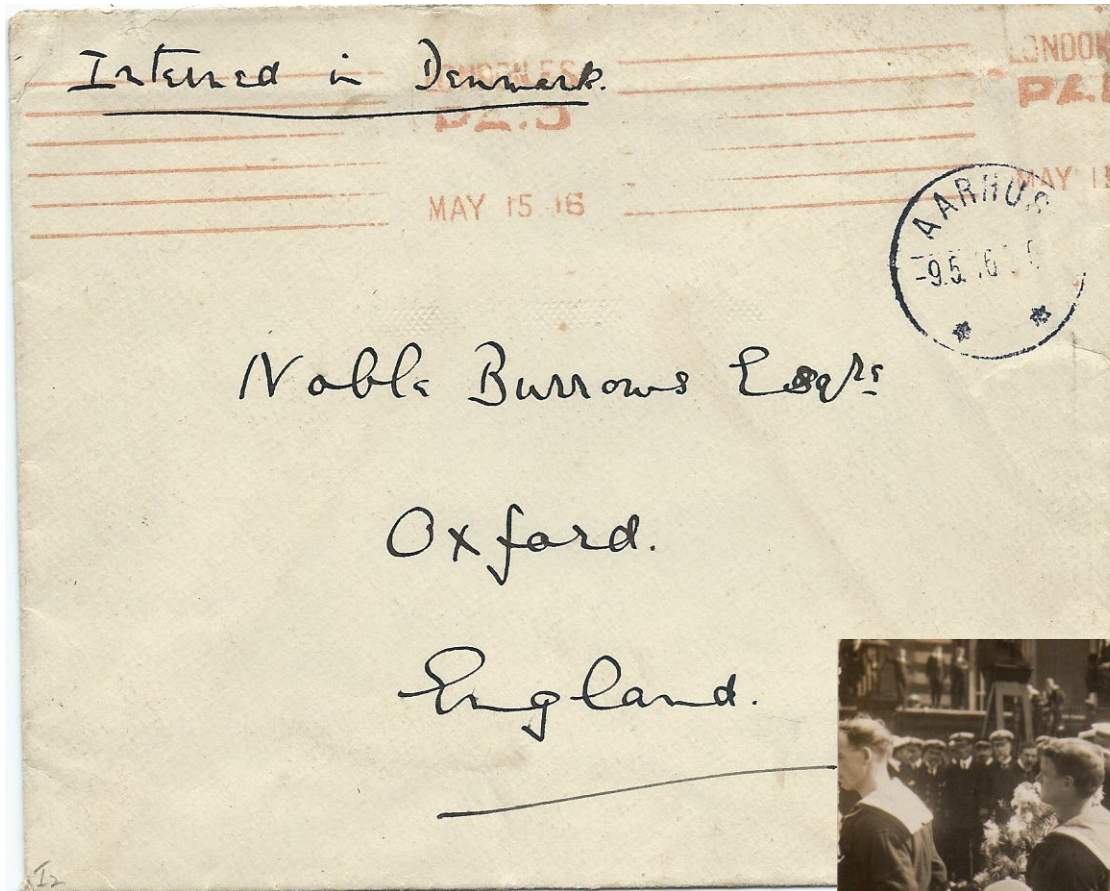 Interned in Denmark.
LONDON
PAID
MAY 15 16
LONDON
MAY 1
AARHUS
Noble Burrows Esqre
Oxford.
England.